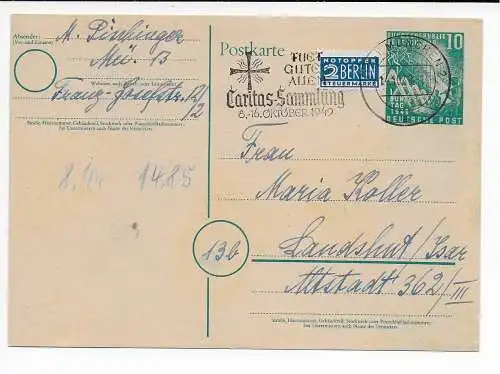 Absender:
M. Dirlinger
Mü. 13
Franz-Josefstr. 12/2
Straße, Hausnummer, Gebäudeteil, Stockwerk oder Postschließfachnummer;
bei Untermietern auch Name des Vermieters
8.
14.85
Postkarte
TUET
GUTES
ALLEN
Caritas-Sammlung
8.-16. OKTOBER 1949
NOTOPFER
2 BERLIN
STEUERMARKE
10
BUN
TAG
1949
DEUTSCHE POST
Frau
Maria Koller
13b
Landshut/Isar
Altstadt 362/III
Straße, Hausnummer, Gebäudeteil, Stockwerk oder Postschließfachnummer;
bei Untermietern auch Name des Vermieters